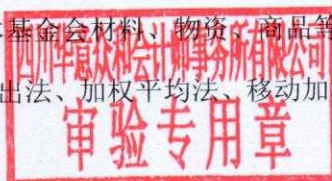 本基金会材料、物资、商品等
四川华意众和会计师事务所有限公司
出法、加权平均法、移动加
审验专用章